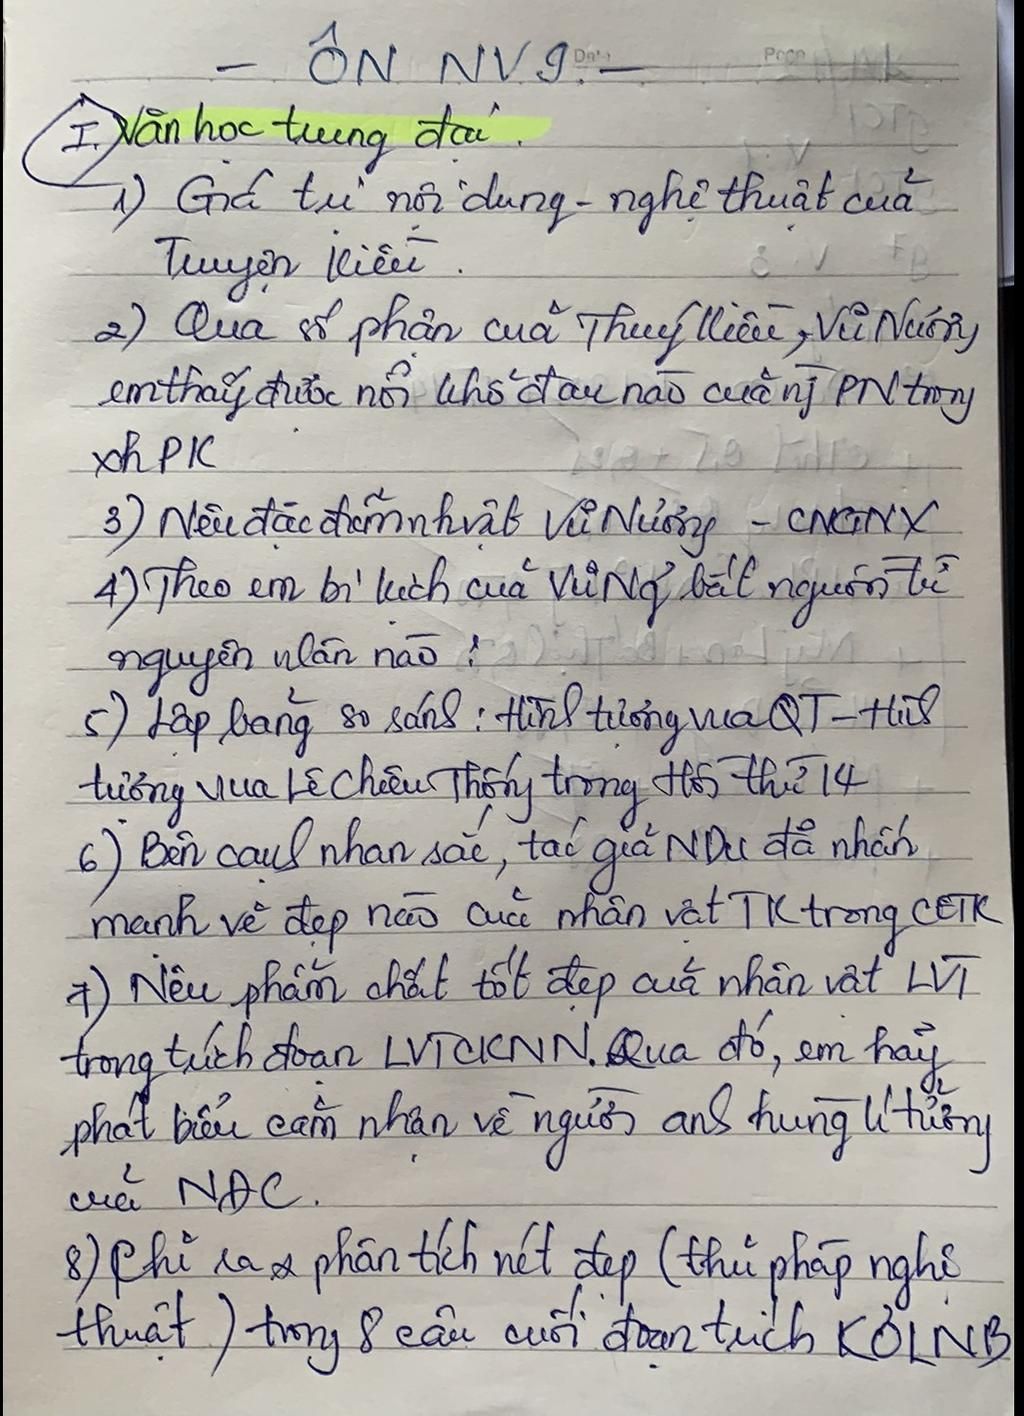 - ÔN NV9. -
I. Văn học trung đại.
1) Giá trị nội dung - nghệ thuật của
Truyện Kiều.
2) Qua số phận của Thuý Kiều, Vũ Nương
em thấy được nỗi khổ đau nào của ng PN trong
xh PK
3) Nêu đặc điểm nh vật Vũ Nương - CNGNX
4) Theo em bi kịch của Vũ Ng bắt nguồn từ
nguyên nhân nào?
5) Lập bảng so sánh: Hình tượng vua QT - Hình
tượng vua Lê Chiêu Thống trong Hồi thứ 14
6) Bên cạnh nhan sắc, tác giả NDu đã nhấn
mạnh vẻ đẹp nào của nhân vật TK trong CETK
7) Nêu phẩm chất tốt đẹp của nhân vật LVT
trong trích đoạn LVTCKNN. Qua đó, em hãy
phát biểu cảm nhận về người anh hùng lí tưởng
của NĐC.
8) Chỉ ra & phân tích nét đẹp (thủ pháp nghệ
thuật) trong 8 câu cuối đoạn trích KỞLNB